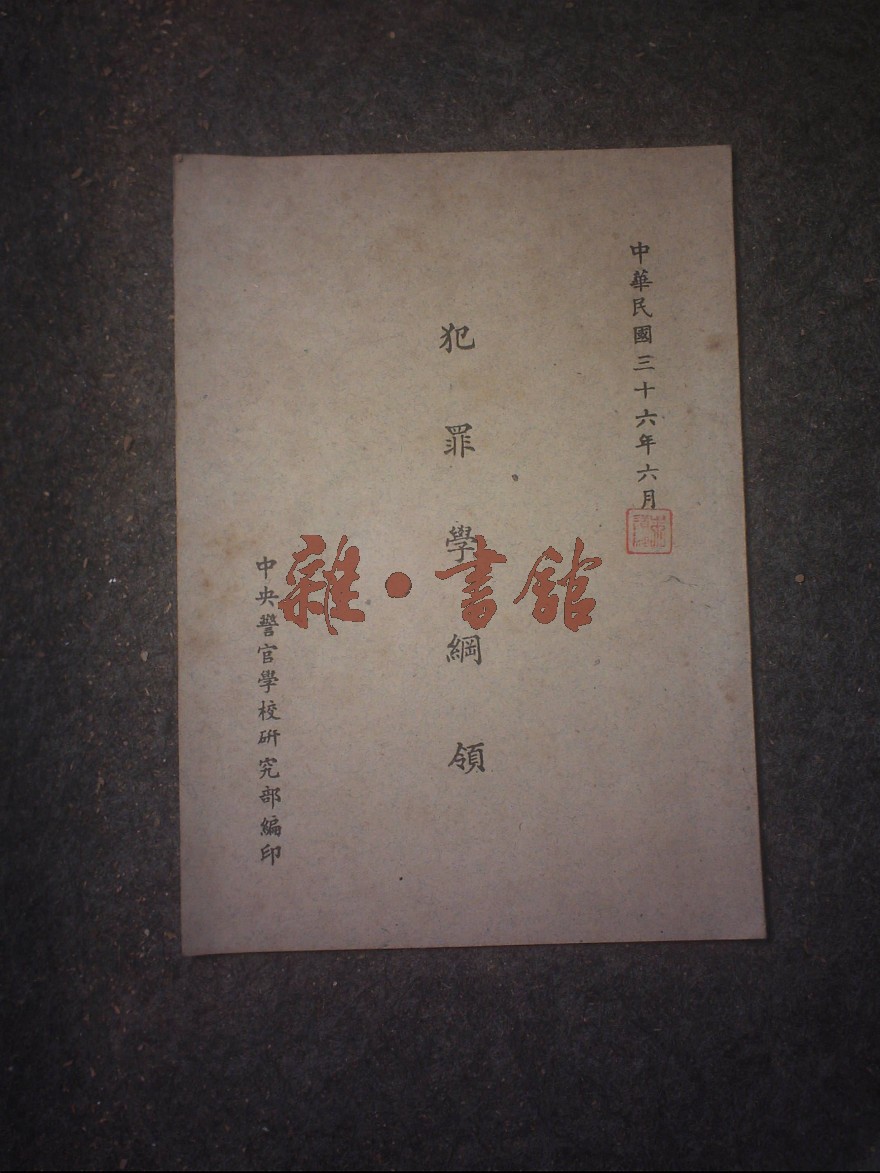 中華民國三十六年六月
犯罪學綱領
中央警官學校研究部編印
雜·書館